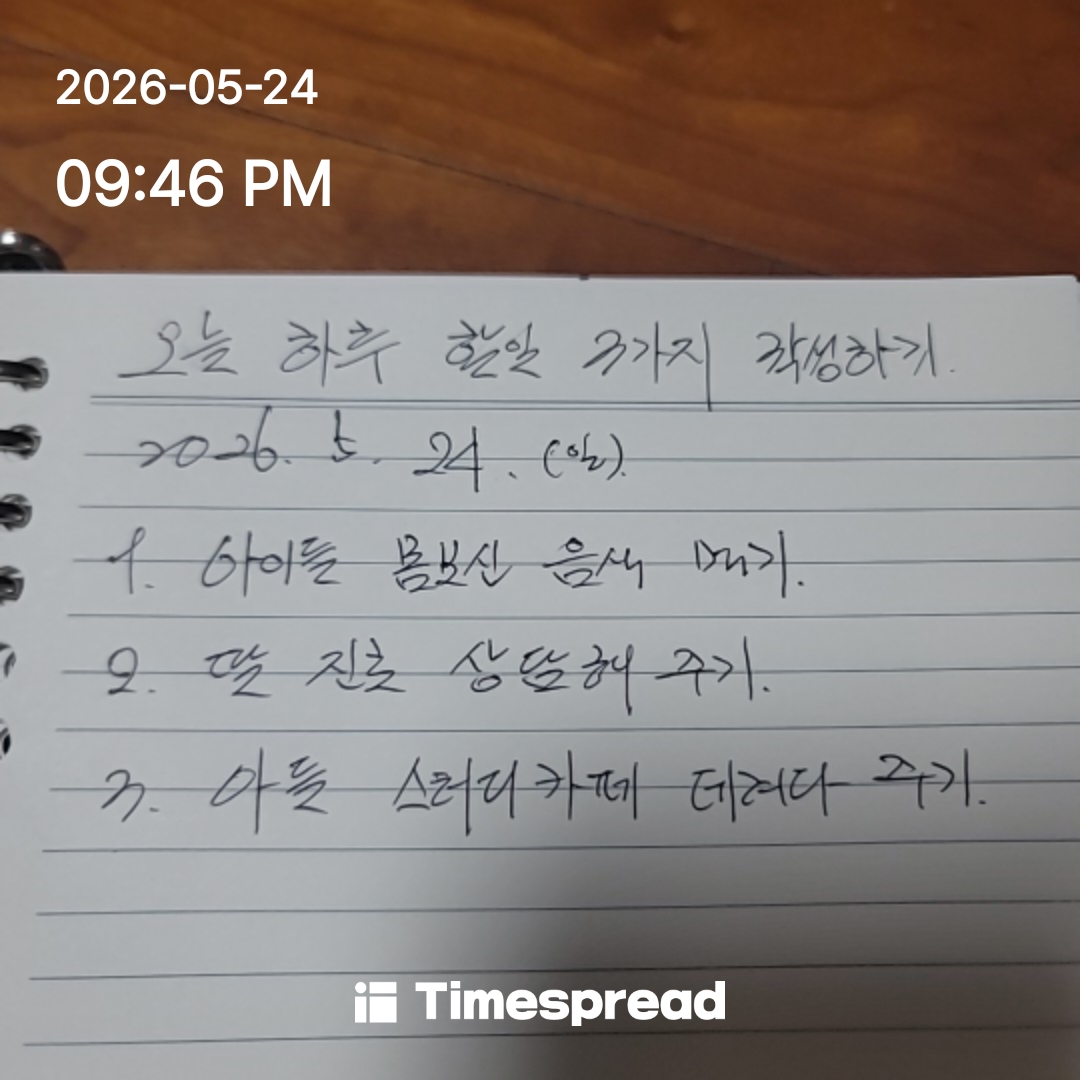 2026-05-24
09:46 PM
오늘 하루 할일 3가지 작성하기.
2026. 5. 24. (일).
1. 아이들 몸보신 음식 먹기.
2. 딸 진로 상담해 주기.
3. 아들 스터디카페 데려다 주기.
Timespread